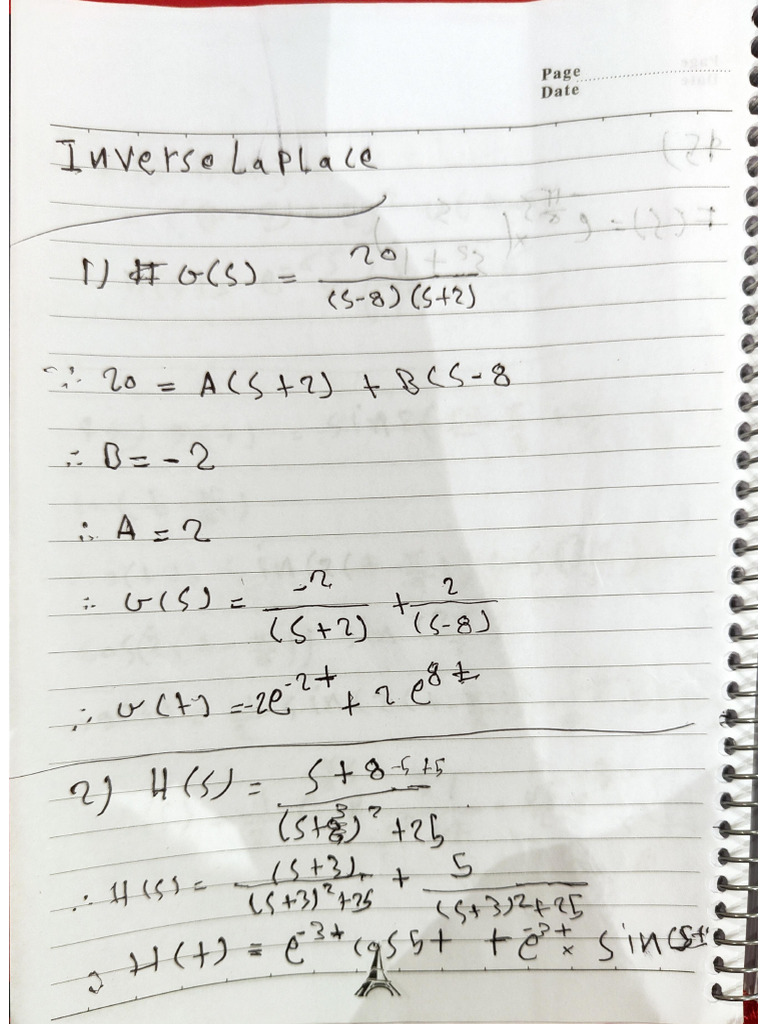 Page
Date
Inverse Laplace
1) # G(S) = 20 / (S-8)(S+2)
∵ 20 = A(S+2) + B(S-8
∴ B = -2
∴ A = 2
∴ G(S) = -2 / (S+2) + 2 / (S-8)
∴ G(t) = -2e^-2t + 2e^8t
2) H(S) = S+8-5+5 / (S+3)^2 +25
∴ H(S) = (S+3) / (S+3)^2+25 + 5 / (S+3)^2+25
∴ H(t) = e^-3t cos5t + e^-3t × sin(5t